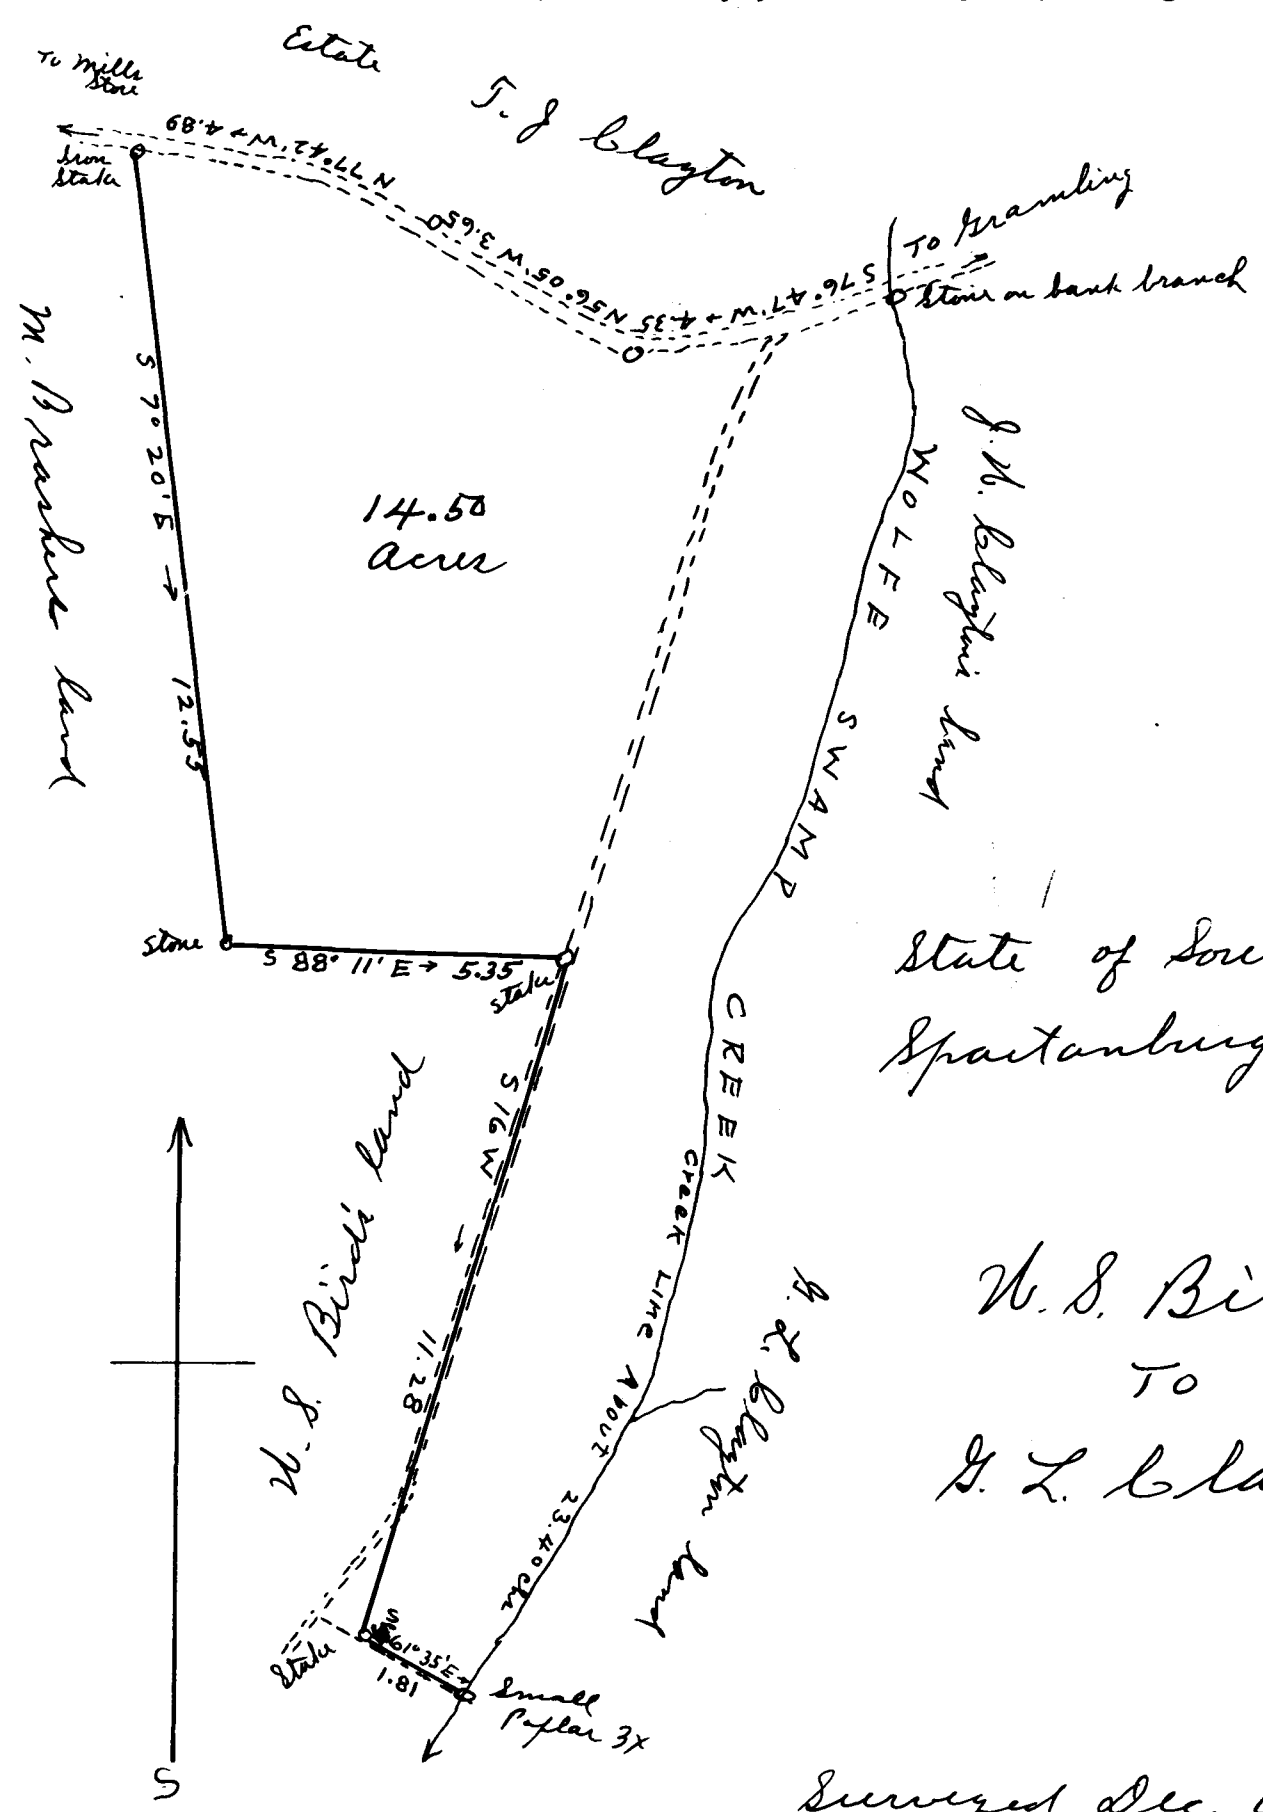 Estate
T. J Clayton
To Mills
Store
Iron
Stake
N 77° 42' W → 4.89
N 56° 05' W 3.65
S 76° 47' W → 4.35
To Gramling
Stone on bank branch
M. Brashers land
S 7° 20' E → 12.55
14.50
Acres
J. H. Clayton's land
WOLFE SWAMP CREEK
Stone
S 88° 11' E → 5.35
stake
State of
Spartanburg
S 16 W → 11.28
Bird's land
Creek Line About 23.40 chs
G. L. Clayton land
S. Bi
To
G. L. Cla
Stake
61° 35' E →
1.81
Small
Poplar 3x
S
Surveyed Dec.